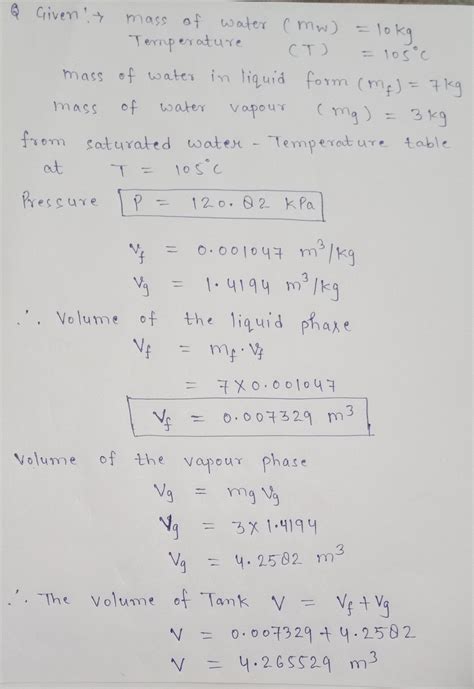 Q Given :→ mass of water (mw) = 10 kg
Temperature (T) = 105°C
mass of water in liquid form (mf) = 7 kg
mass of water vapour (mg) = 3 kg
from saturated water - Temperature table
at T = 105°C
Pressure P = 120.82 kPa
Vf = 0.001047 m³/kg
Vg = 1.4194 m³/kg
∴ Volume of the liquid phase
Vf = mf · Vf
= 7 × 0.001047
Vf = 0.007329 m³
Volume of the vapour phase
Vg = mg Vg
Vg = 3 × 1.4194
Vg = 4.2582 m³
∴ The Volume of Tank V = Vf + Vg
V = 0.007329 + 4.2582
V = 4.265529 m³